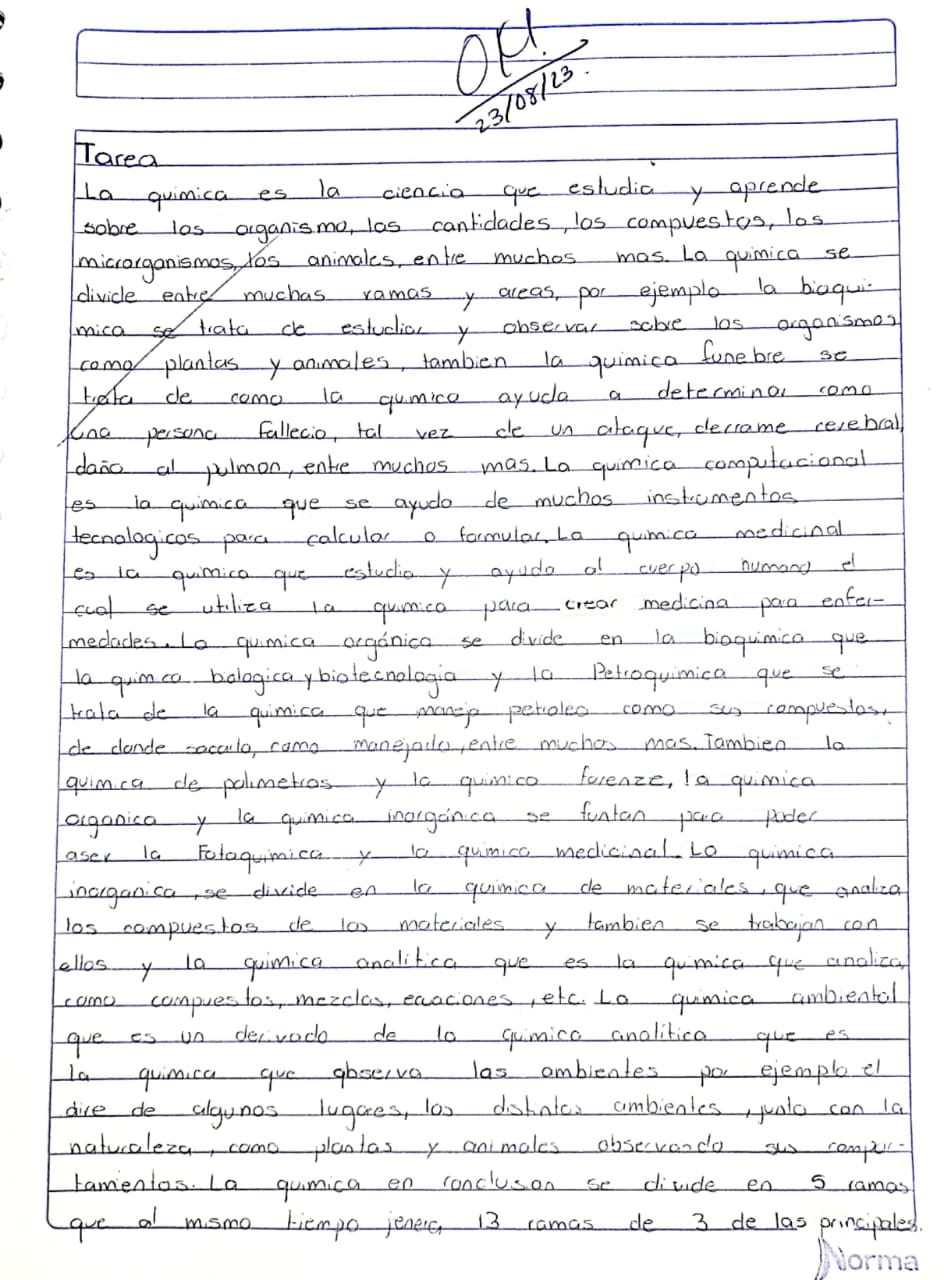 OK.
23/08/23.
Tarea
La quimica es la ciencia que estudia y aprende
sobre los organismo, las cantidades, los compuestos, los
microrganismos, los animales, entre muchos mas. La quimica se
divide entre muchas ramas y areas, por ejemplo la bioqui-
mica se trata de estudiar y observar sobre los organismos
como plantas y animales, tambien la quimica funebre se
trata de como la quimica ayuda a determinar como
una persona fallecio, tal vez de un ataque, derrame cerebral,
daño al pulmon, entre muchos mas. La quimica computacional
es la quimica que se ayuda de muchos instrumentos
tecnologicos para calcular o formular. La quimica medicinal
es la quimica que estudia y ayuda al cuerpo humano el
cual se utiliza la quimica para crear medicina para enfer-
medades. La quimica orgánica se divide en la bioquimica que
la quimica biologica y biotecnologia y la Petroquimica que se
trata de la quimica que maneja petroleo como sus compuestos,
de donde sacarlo, como manejarlo, entre muchos mas. Tambien la
quimica de polimetros y la quimica forenze, la quimica
organica y la quimica inorgánica se funtan para poder
aser la Fotoquimica y la quimica medicinal. La quimica
inorganica, se divide en la quimica de materiales, que analiza
los compuestos de los materiales y tambien se trabajan con
ellos y la quimica analitica que es la quimica que analiza,
como compuestos, mezclas, ecuaciones, etc. La quimica ambiental
que es un derivado de la quimica analitica que es
la quimica que observa las ambientes por ejemplo el
aire de algunos lugares, los distintos ambientes, junto con la
naturaleza, como plantas y animales observando sus compor-
tamientos. La quimica en conclusion se divide en 5 ramas
que al mismo tiempo jenera 13 ramas de 3 de las principales.
Norma